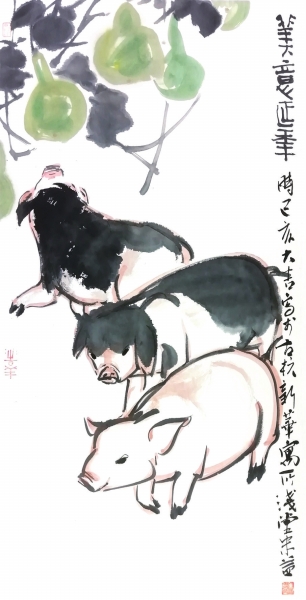 美意延年
時己亥大吉寫於古杭新華寓所淺堂朱益